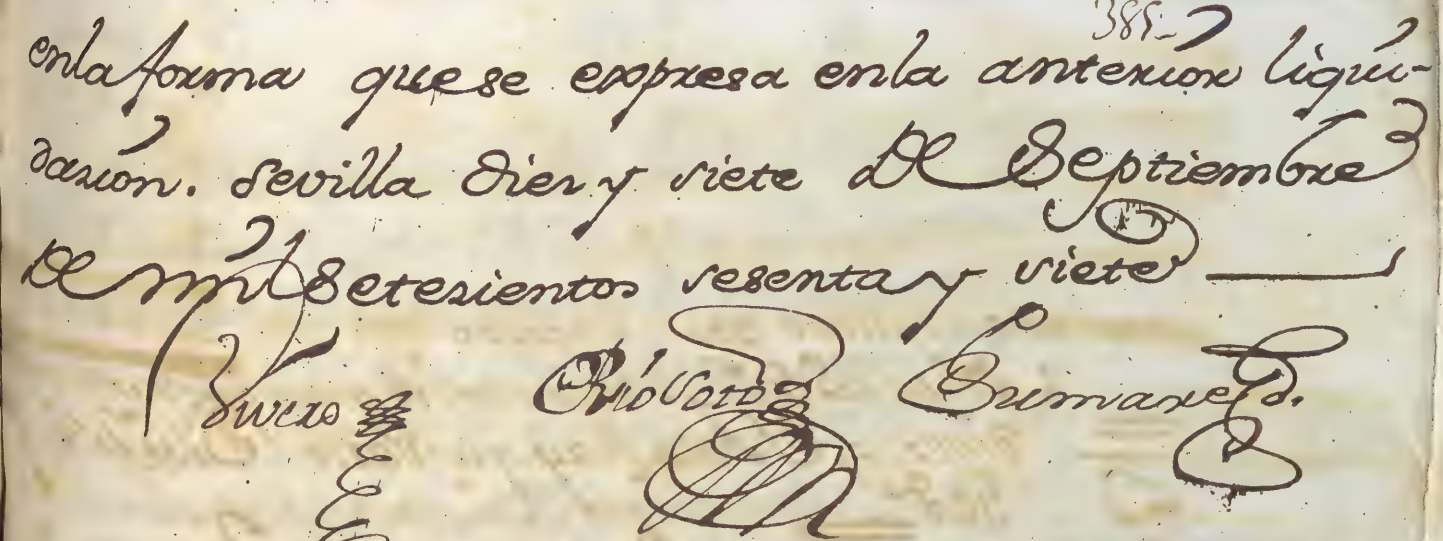 385
enla forma quese expresa enla anterior liqui-
dazión. Sevilla diez y siete De Septiembre
De mil Setezientos sesenta y siete
Vivero Rioboto Gumarep.